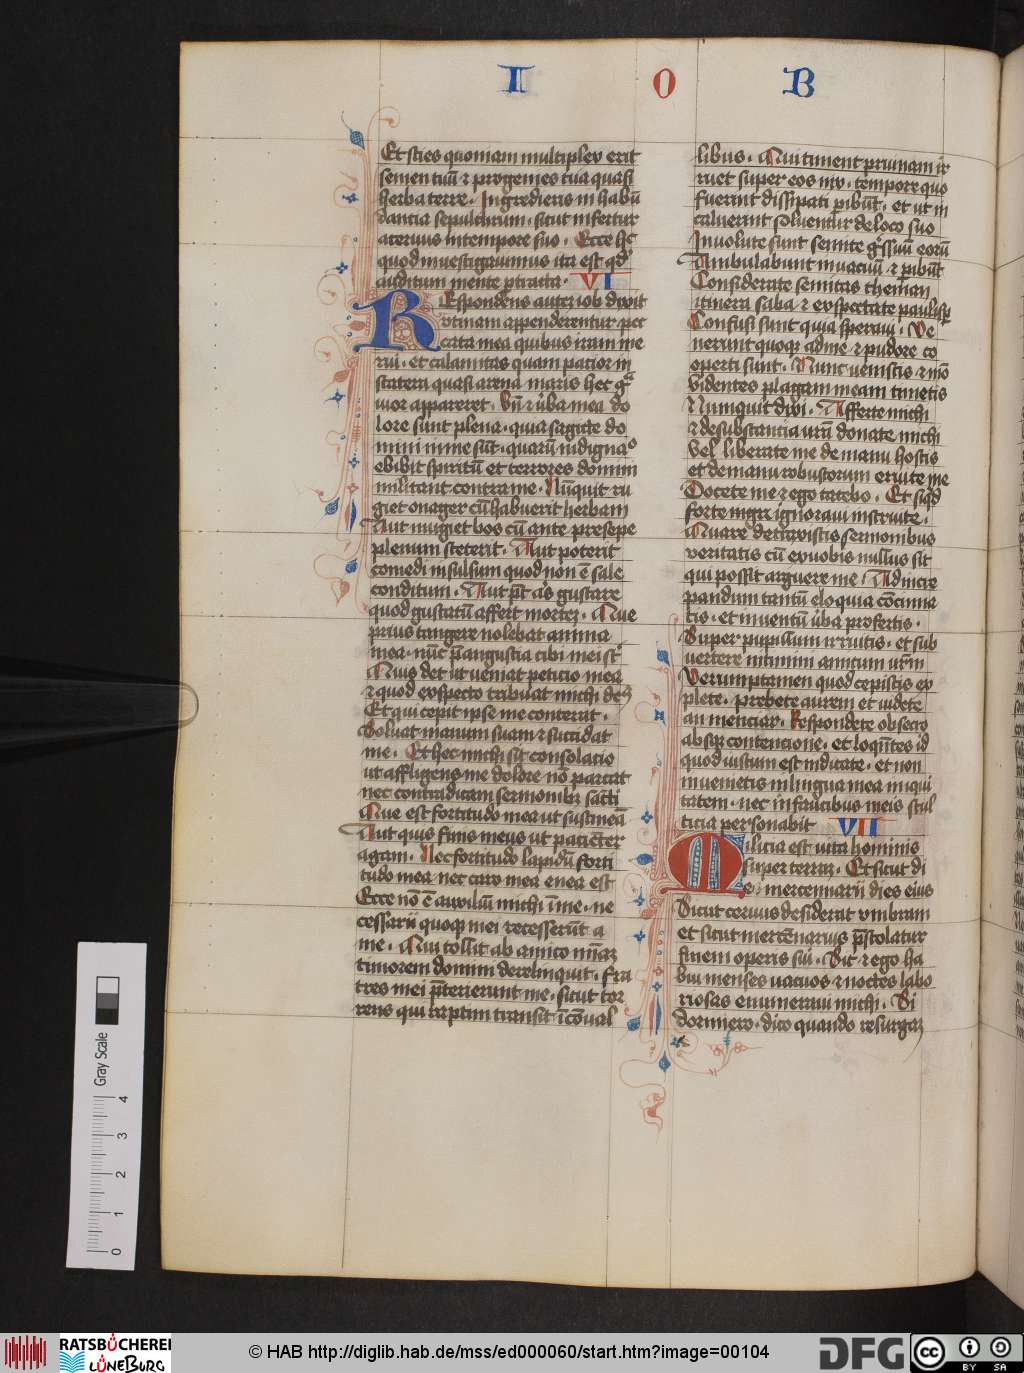 I O B
Et scies quoniam multiplex erit
semen tuū ⁊ progenies tua quasi
herba terre. Ingredieris in habū
dantia sepulchrum. sicut infertur
acervus in tempore suo. Ecce hᵉ
quod investigavimus ita est qᵈ
auditum mente ptracta. VI
REspondens autem iob dixit
vtinam appenderentur pec
cata mea quibus iram me
rui. et calamitas quam patior in
statera quasi arena maris hec gᵃ
uior appareret. Vn̄ ⁊ ūba mea do
lore sunt plena. quia sagitte do
mini in me sūt. quarū indignaᵒ
ebibit spiritū et terrores domini
militant contra me. Nūquit ru
giet onager cū habuerit herbam
Aut mugiet bos cū ante presepe
plenum steterit. Aut poterit
comedi insulsum quod non ē sale
conditum. Aut pt̄ als gustare
quod gustatū affert mortez. Que
prius tangere nolebat anima
mea. nūc p̄ angustia cibi mei st̄
Quis det ut veniat peticio mea
⁊ quod exspecto tribuat michi deꝰ
Et qui cepit ipse me conterat.
Soluat manum suam ⁊ succidat
me. Et hec michi sit consolatio
ut affligens me dolore nō parcat
nec contradicam sermonibꝫ sācti
Que est fortitudo mea ut sustineā
Aut quis finis meus ut pacient̄er
agam. Nec fortitudo lapidū forti
tudo mea nec caro mea enea est
Ecce nō ē auxiliū michi ī me. ne
cessarii quoqꝫ mei recesserūt a
me. Qui toll̄it ab amico mīaꝫ
timorem domini derelinquit. fra
tres mei p̄terierunt me. sicut tor
rens qui raptim transit ī cōual
libus. Qui timent pruinam ir
ruet super eos nix. tempore quo
fuerint dissipati pibūt. et ut in
caluerint soluentur de loco suo
Inuolute sunt semite gͥssuū eorū
Ambulabunt in vacuū ⁊ pibūt
Considerate semitas theman
itinera saba ⁊ exspectate paulisp
Confusi sunt quia speraui. Ve
nerunt quoqꝫ ad me ⁊ pudore co
operti sunt. Nunc venistis ⁊ mō
videntes plagam meam timetis
Numquit dixi. Afferte michi
⁊ de substantia vrā donate michi
Vel liberate me de manu hostis
et de manu robustorum eruite me
Docete me ⁊ ego tacebo. Et siqd
forte ingre ignoraui instruite.
Quare detraxistis sermonibus
veritatis cū ex uobis nullus sit
qui possit arguere me. Ad incre
pandum tantū eloquia cōcinna
tis. et in uentū ūba profertis.
Super pupillum irruitis. et sub
vertere nitimini amicum vr̄m
Verumptamen quod cepistis ex
plete. prebete aurem et uidete
an menciar. Respondete obsecro
absqꝫ contencione. et loqūtes id
quod iustum est iudicate. et non
inuenietis in lingua mea iniqui
tatem. nec in faucibus meis stul
ticia personabit VII
Milicia est vita hominis
super terraꝫ. Et sicut di
es mercennarii dies eius
Sicut ceruus desiderat vmbram
et sicut mercēnarius p̄stolatur
finem operis sui. Sic ⁊ ego ha
bui menses vacuos ⁊ noctes labo
riosas enumeraui michi. Si
dormiero. dico quando resurgaꝫ
Gray Scale
0 1 2 3 4
RATSBÜCHEREI
LÜNEBURG
© HAB http://diglib.hab.de/mss/ed000060/start.htm?image=00104
DFG
cc BY SA